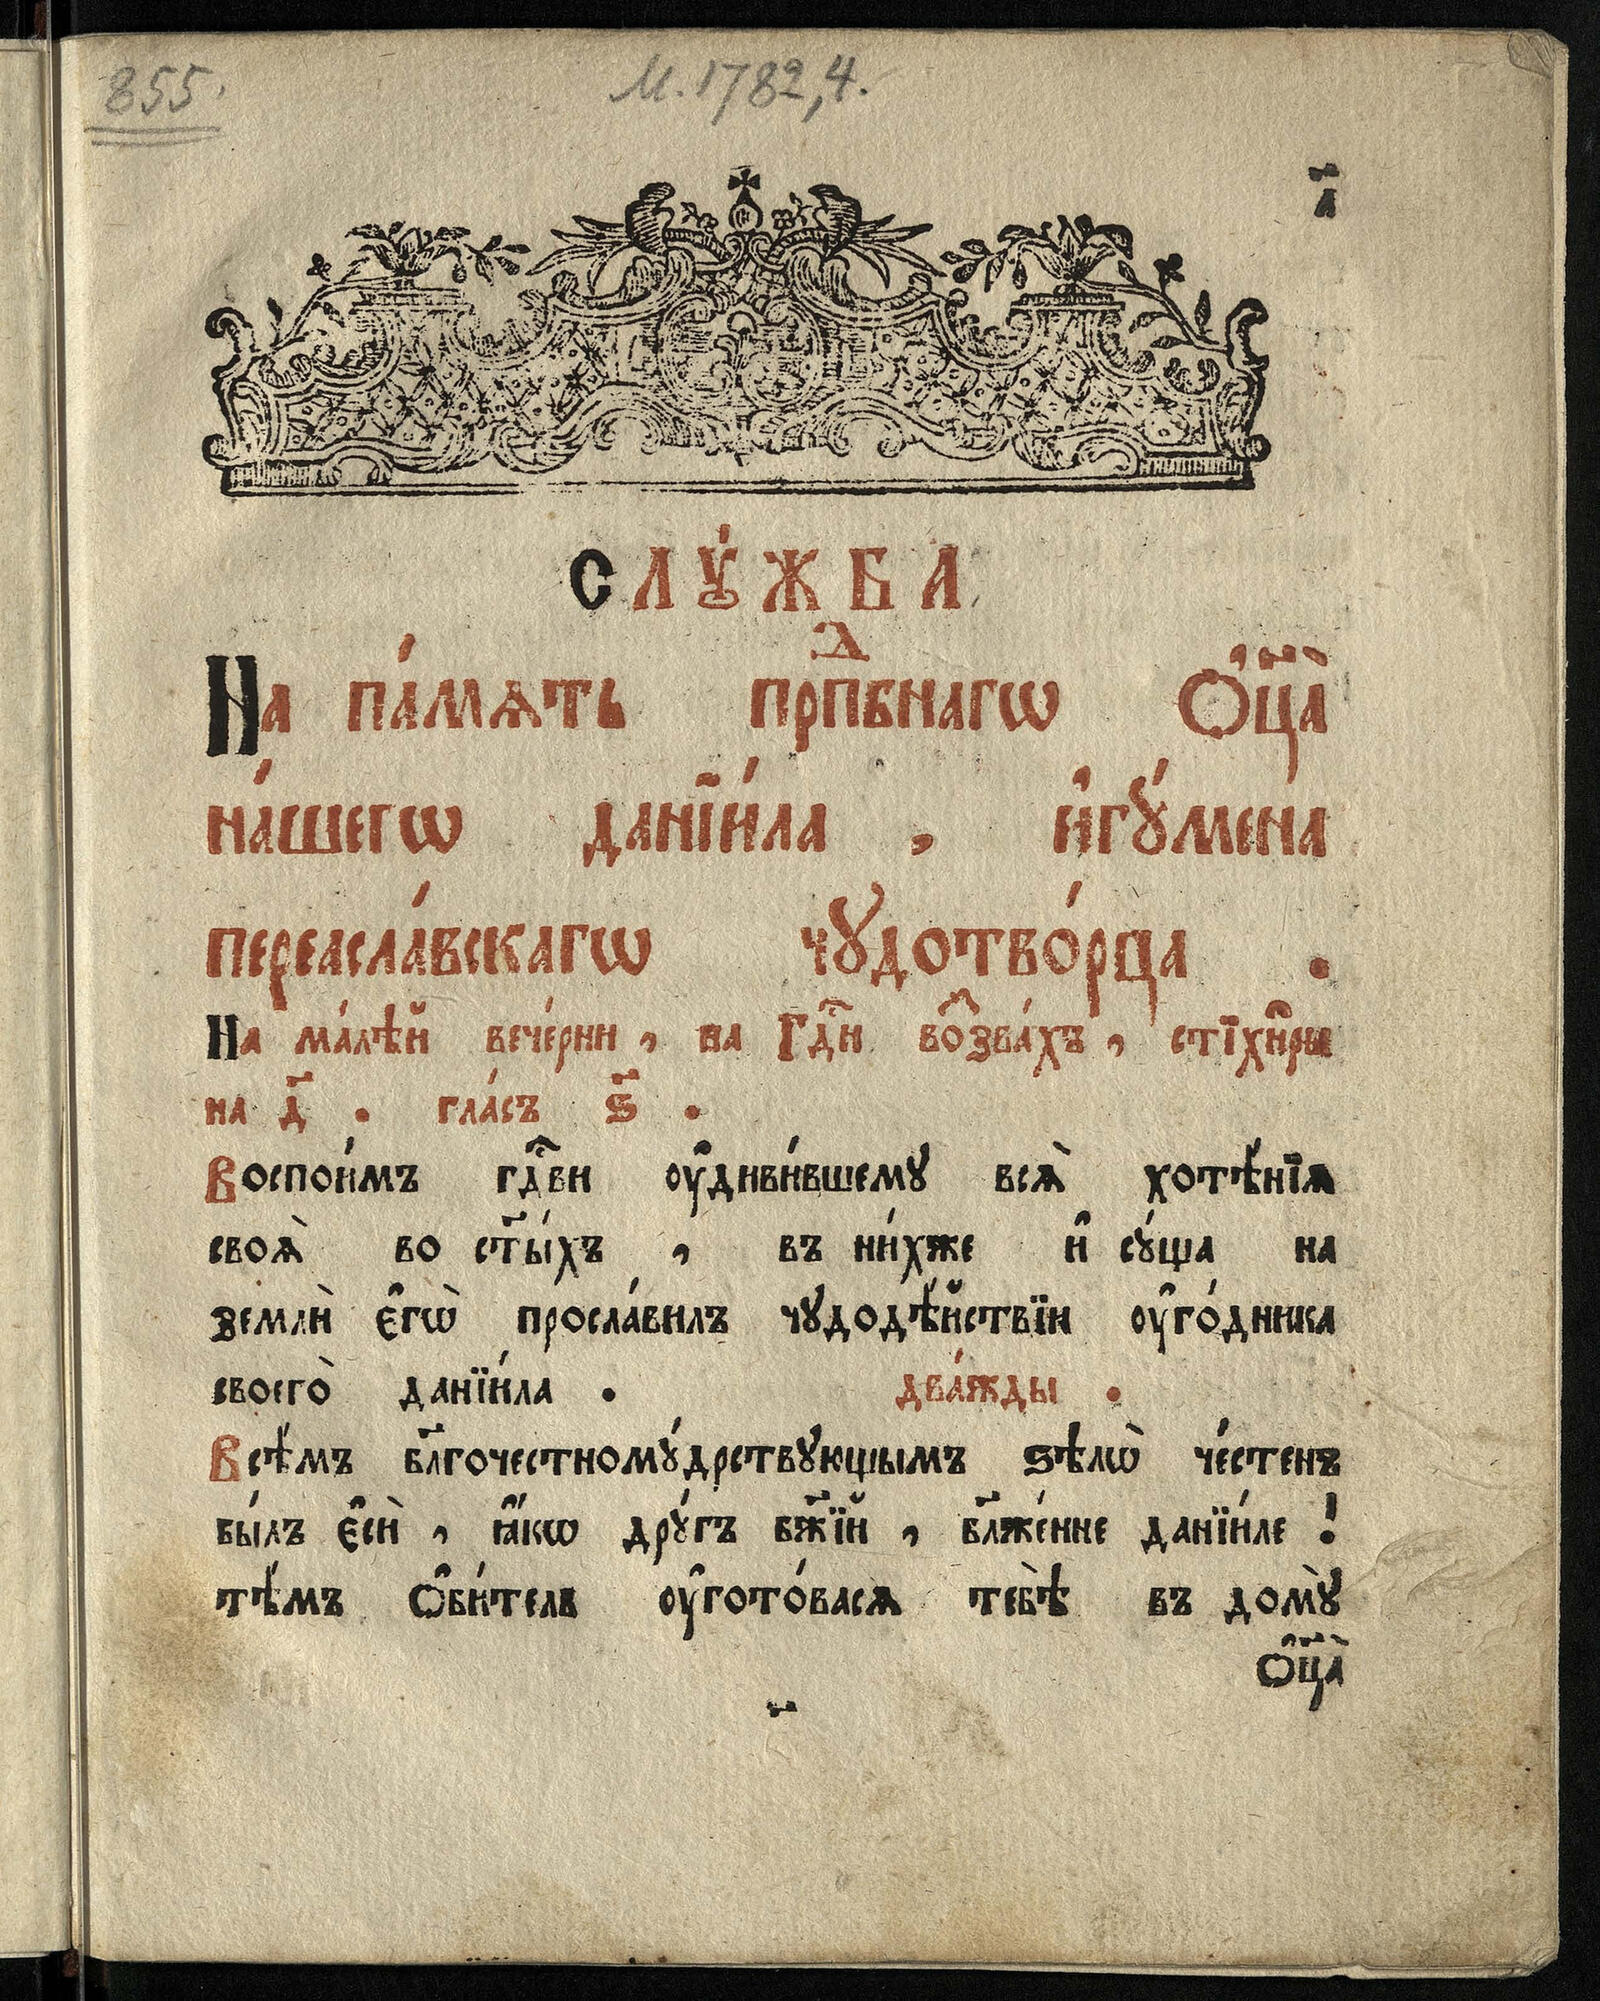 855.
М. 1782,4.
а҃
СЛꙋ́ЖБА
На па́мѧть прпⷣбнагѡ Ѻ҆ц҃а̀
на́шегѡ данїи́ла , и҆гꙋ́мена
переасла́вскагѡ чꙋдотво́рца .
На ма́лѣй вече́рни , на Гдⷭ҇и воⷥзва́хъ , стїхи̑ры
на д҃ . гла́съ ѕ҃ .
Воспои́мъ гдⷭ҇ви ᲂу҆диви́вшемꙋ всѧ̀ хотѣ́нїѧ
своѧ̀ во ст҃ы́хъ , въ ни́хже и҆ сꙋ́ща на
землѝ є҆гѡ̀ просла́вилъ чꙋдодѣ́йствїи ᲂу҆го́дника
своего̀ данїи́ла . два́жды .
Всѣ́мъ бл҃гочестномꙋ́дрствꙋющымъ ѕѣлѡ̀ че́стенъ
бы́лъ є҆сѝ , ꙗ҆́кѡ дрꙋ́гъ бж҃їй , бл҃же́нне данїи́ле !
тѣ́мъ ѻ҆би́тель ᲂу҆гото́васѧ тебѣ̀ въ домꙋ̀
ѻ҆ц҃а̀